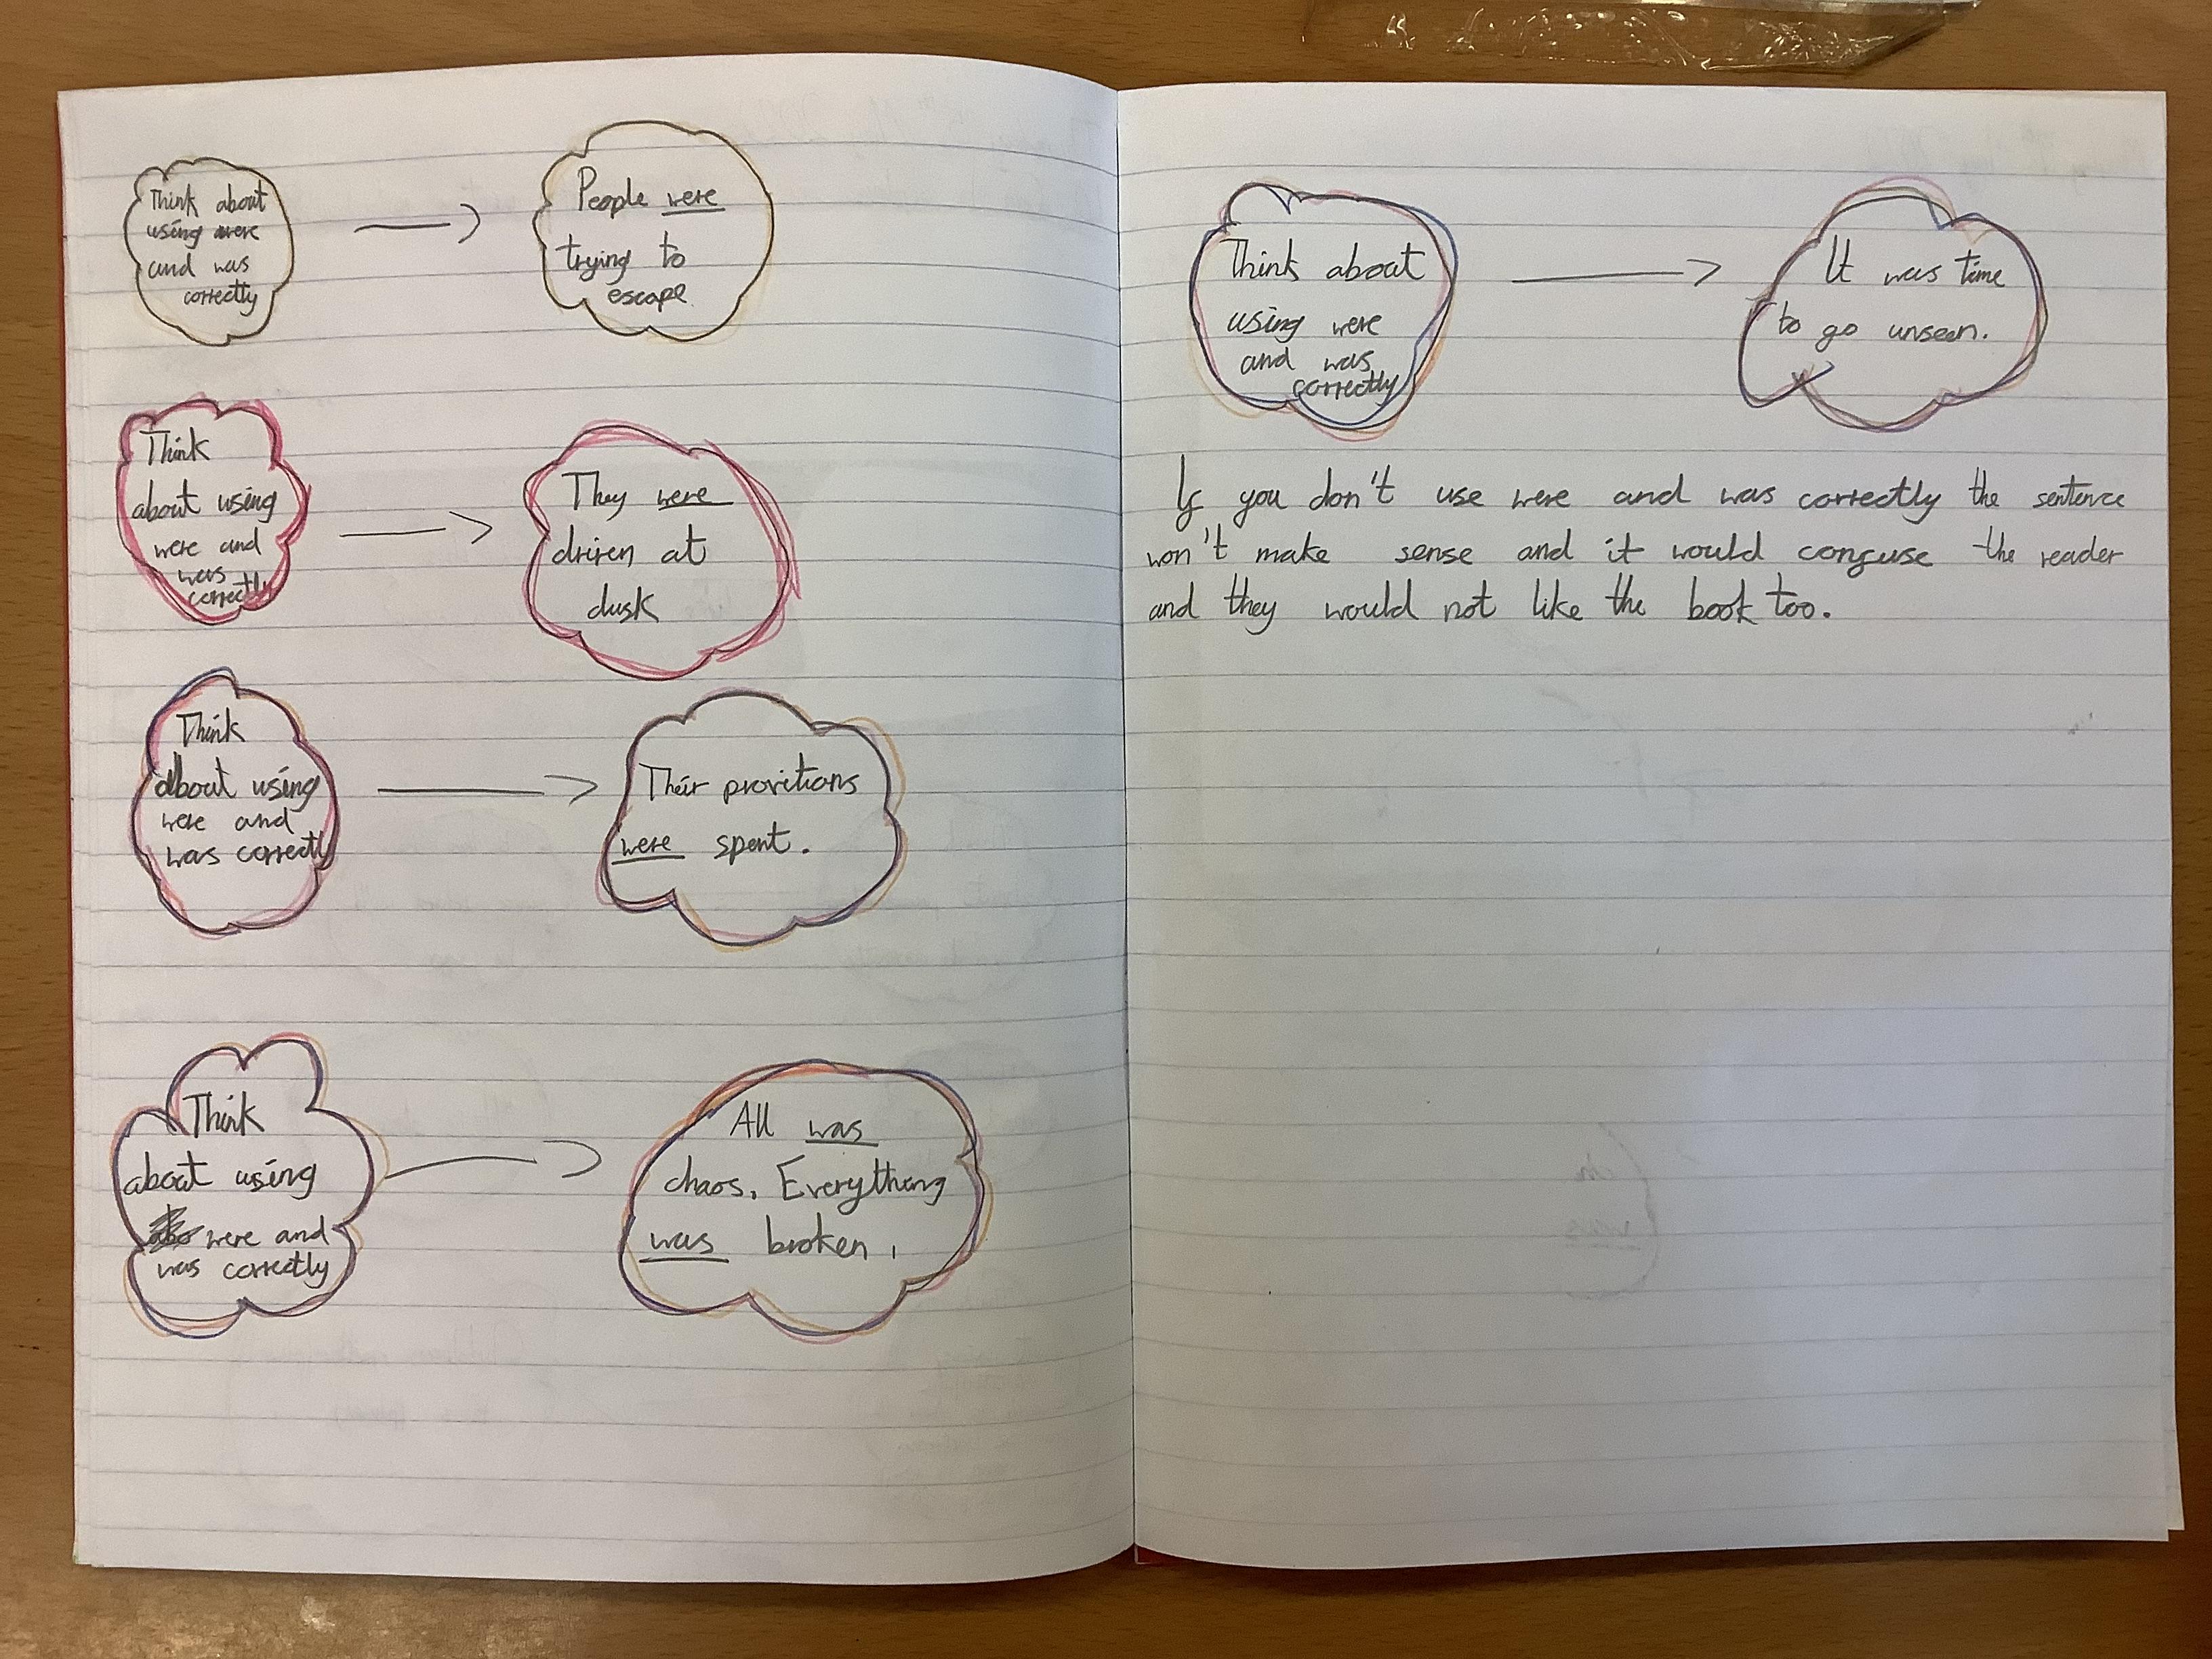 Think about
using were
and was
correctly
People were
trying to
escape.
Think
about using
were and
was
correctly
They were
driven at
dusk
Think
about using
were and
was correctly
Their provitions
were spent.
Think
about using
were and
was correctly
All was
chaos. Everything
was broken.
Think about
using were
and was
correctly
It was time
to go unseen.
If you don't use were and was correctly the sentence
won't make sense and it would confuse the reader
and they would not like the book too.